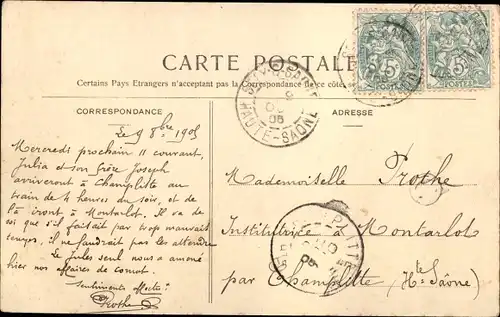 CARTE POSTALE
Certains Pays Etrangers n'acceptant pas la Correspondance de ce côté, se
CORRESPONDANCE
ADRESSE
Le 9 8bre 1905
Mercredi prochain 11 courant,
Julia et son frère Joseph
arriveront à Champlitte au
train de 4 heures du soir, et de
là iront à Montarlot. Il va de
soi que s'il faisait par trop mauvais
temps, il ne faudrait pas les attendre.
Le Jules seul nous a amené
hier nos affaires de
Sentiments affect.
Prothe
Mademoiselle Prothe
Institutrice à Montarlot
par Champlitte (Hte Saône)
HAUTE-SAONE
9
05
5
POSTES
5
POSTES